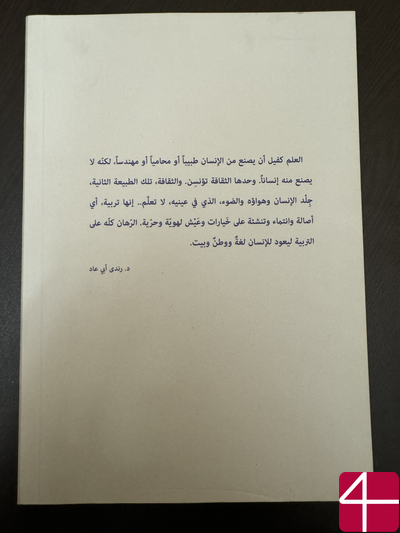 العلم كفيل أن يصنع من الإنسان طبيباً أو محامياً أو مهندساً، لكنّه لا
يصنع منه إنساناً. وحدها الثقافة تؤنسِن. والثقافة، تلك الطبيعة الثانية،
جِلْد الإنسان وهواؤه والضوء، الذي في عينيه، لا تعلَّم.. إنها تربية، أي
أصالة وانتماء وتنشئة على خَيارات وعَيْش لهويّة وحرّية. الرّهان كلّه على
التربية ليعود للإنسان لغةٌ ووطنٌ وبيت.
د. رندى أبي عاد
4